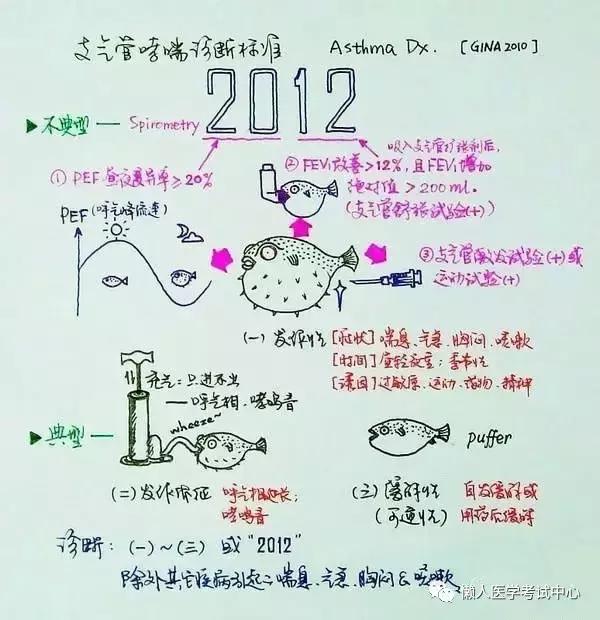 支气管哮喘诊断标准 Asthma Dx. [GINA 2010]
2012
▶不典型— Spirometry
吸入支气管扩张剂后,
① PEF昼夜变异率≥20%
② FEV₁改善>12%, 且FEV₁增加
绝对值>200ml.
(支气管舒张试验(+))
PEF(呼气峰流速)
③支气管激发试验(+)或
运动试验(+)
(一)发作性 [症状]喘息、气急、胸闷、咳嗽
[时间]昼轻夜重; 季节性
[诱因]过敏原、运动、药物、精神
充气:只进不出
—呼气相、哮鸣音
wheeze~
▶典型—
puffer
(二)发作体征 呼气相延长;
哮鸣音
(三)缓解性 自发缓解或
(可逆性) 用药后缓解
诊断: (一)~(三) 或"2012"
除外其它疾病引起之喘息、气急、胸闷&咳嗽
懒人医学考试中心